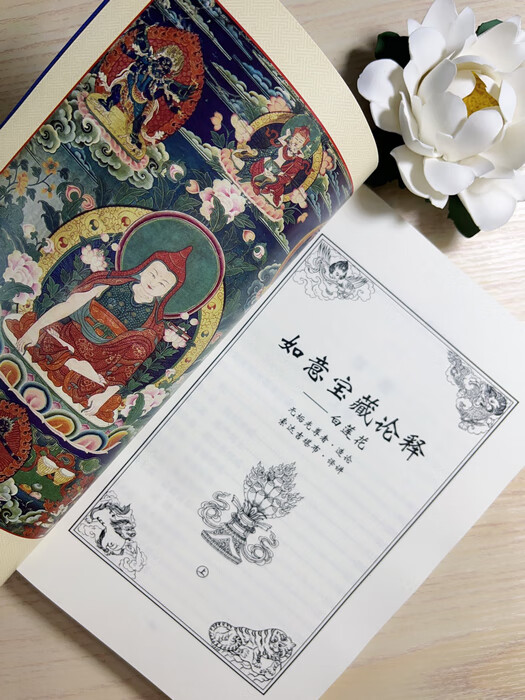 如意宝藏论释
——白莲花
无垢光尊者·造论
索达吉堪布·译讲
上